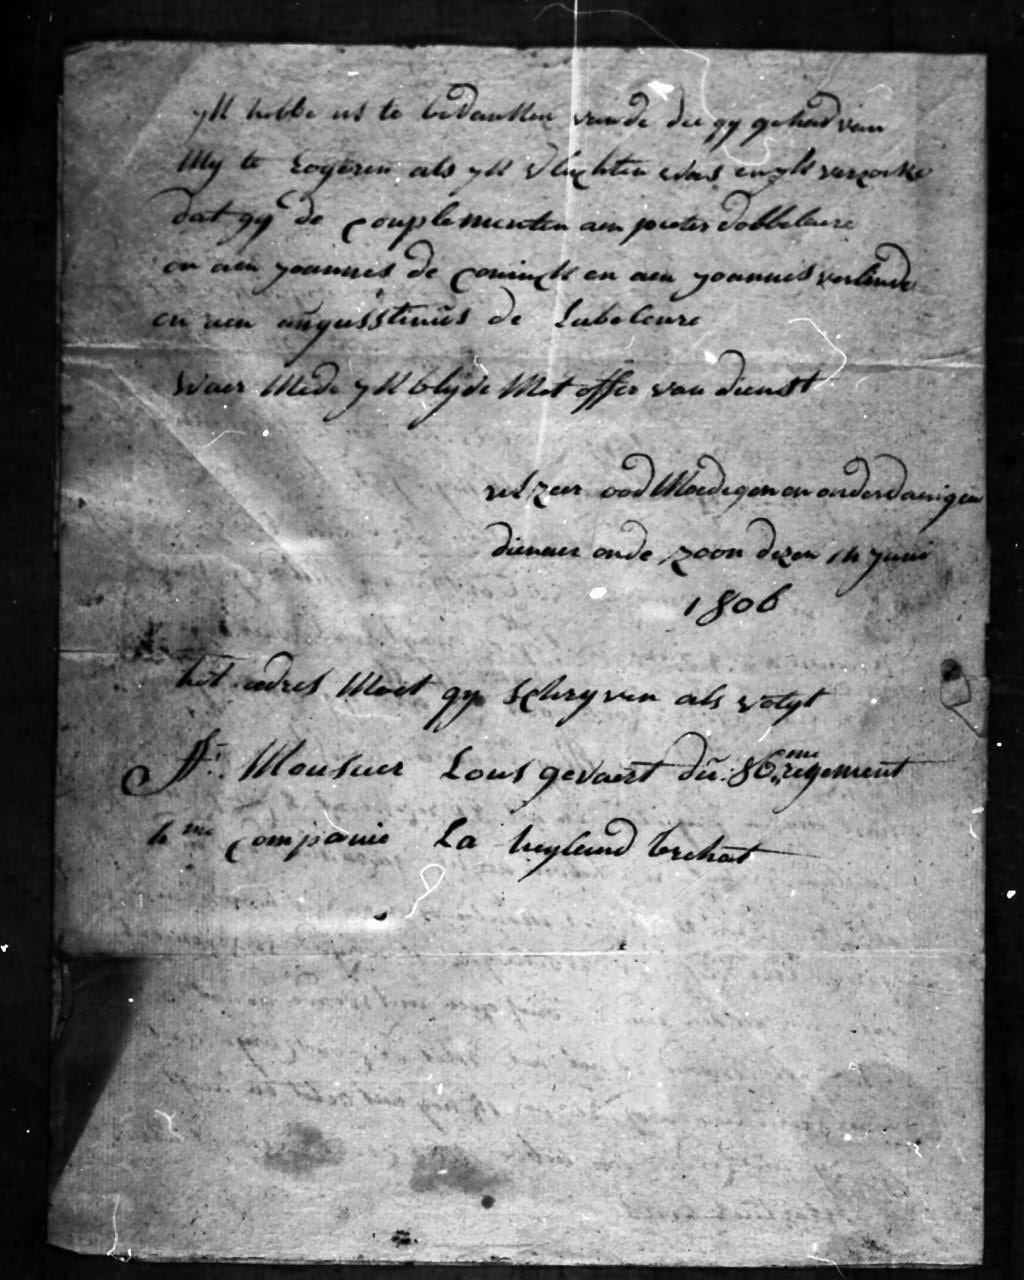 yk hebbe us te bedanken van de die gy gehad van
My te Logeren als yk vluchten was en yk verzoeke
dat gy de Couplementen aen pieter dobbelaere
en aen yoannes de Coninck en aen yoannes verlinde
en aen augusstinus de Lubeleure
Waer Mede yk blyde Met offer van dienst
zeer ood Moedegen en onderdaenigen
dienaer ende zoon dezen 14 yuni
1806
het adres Moet gy schryven als volgt
A: Monsuer Lous gevaert du: 86,me regement
4me Companie La heyleund brehat